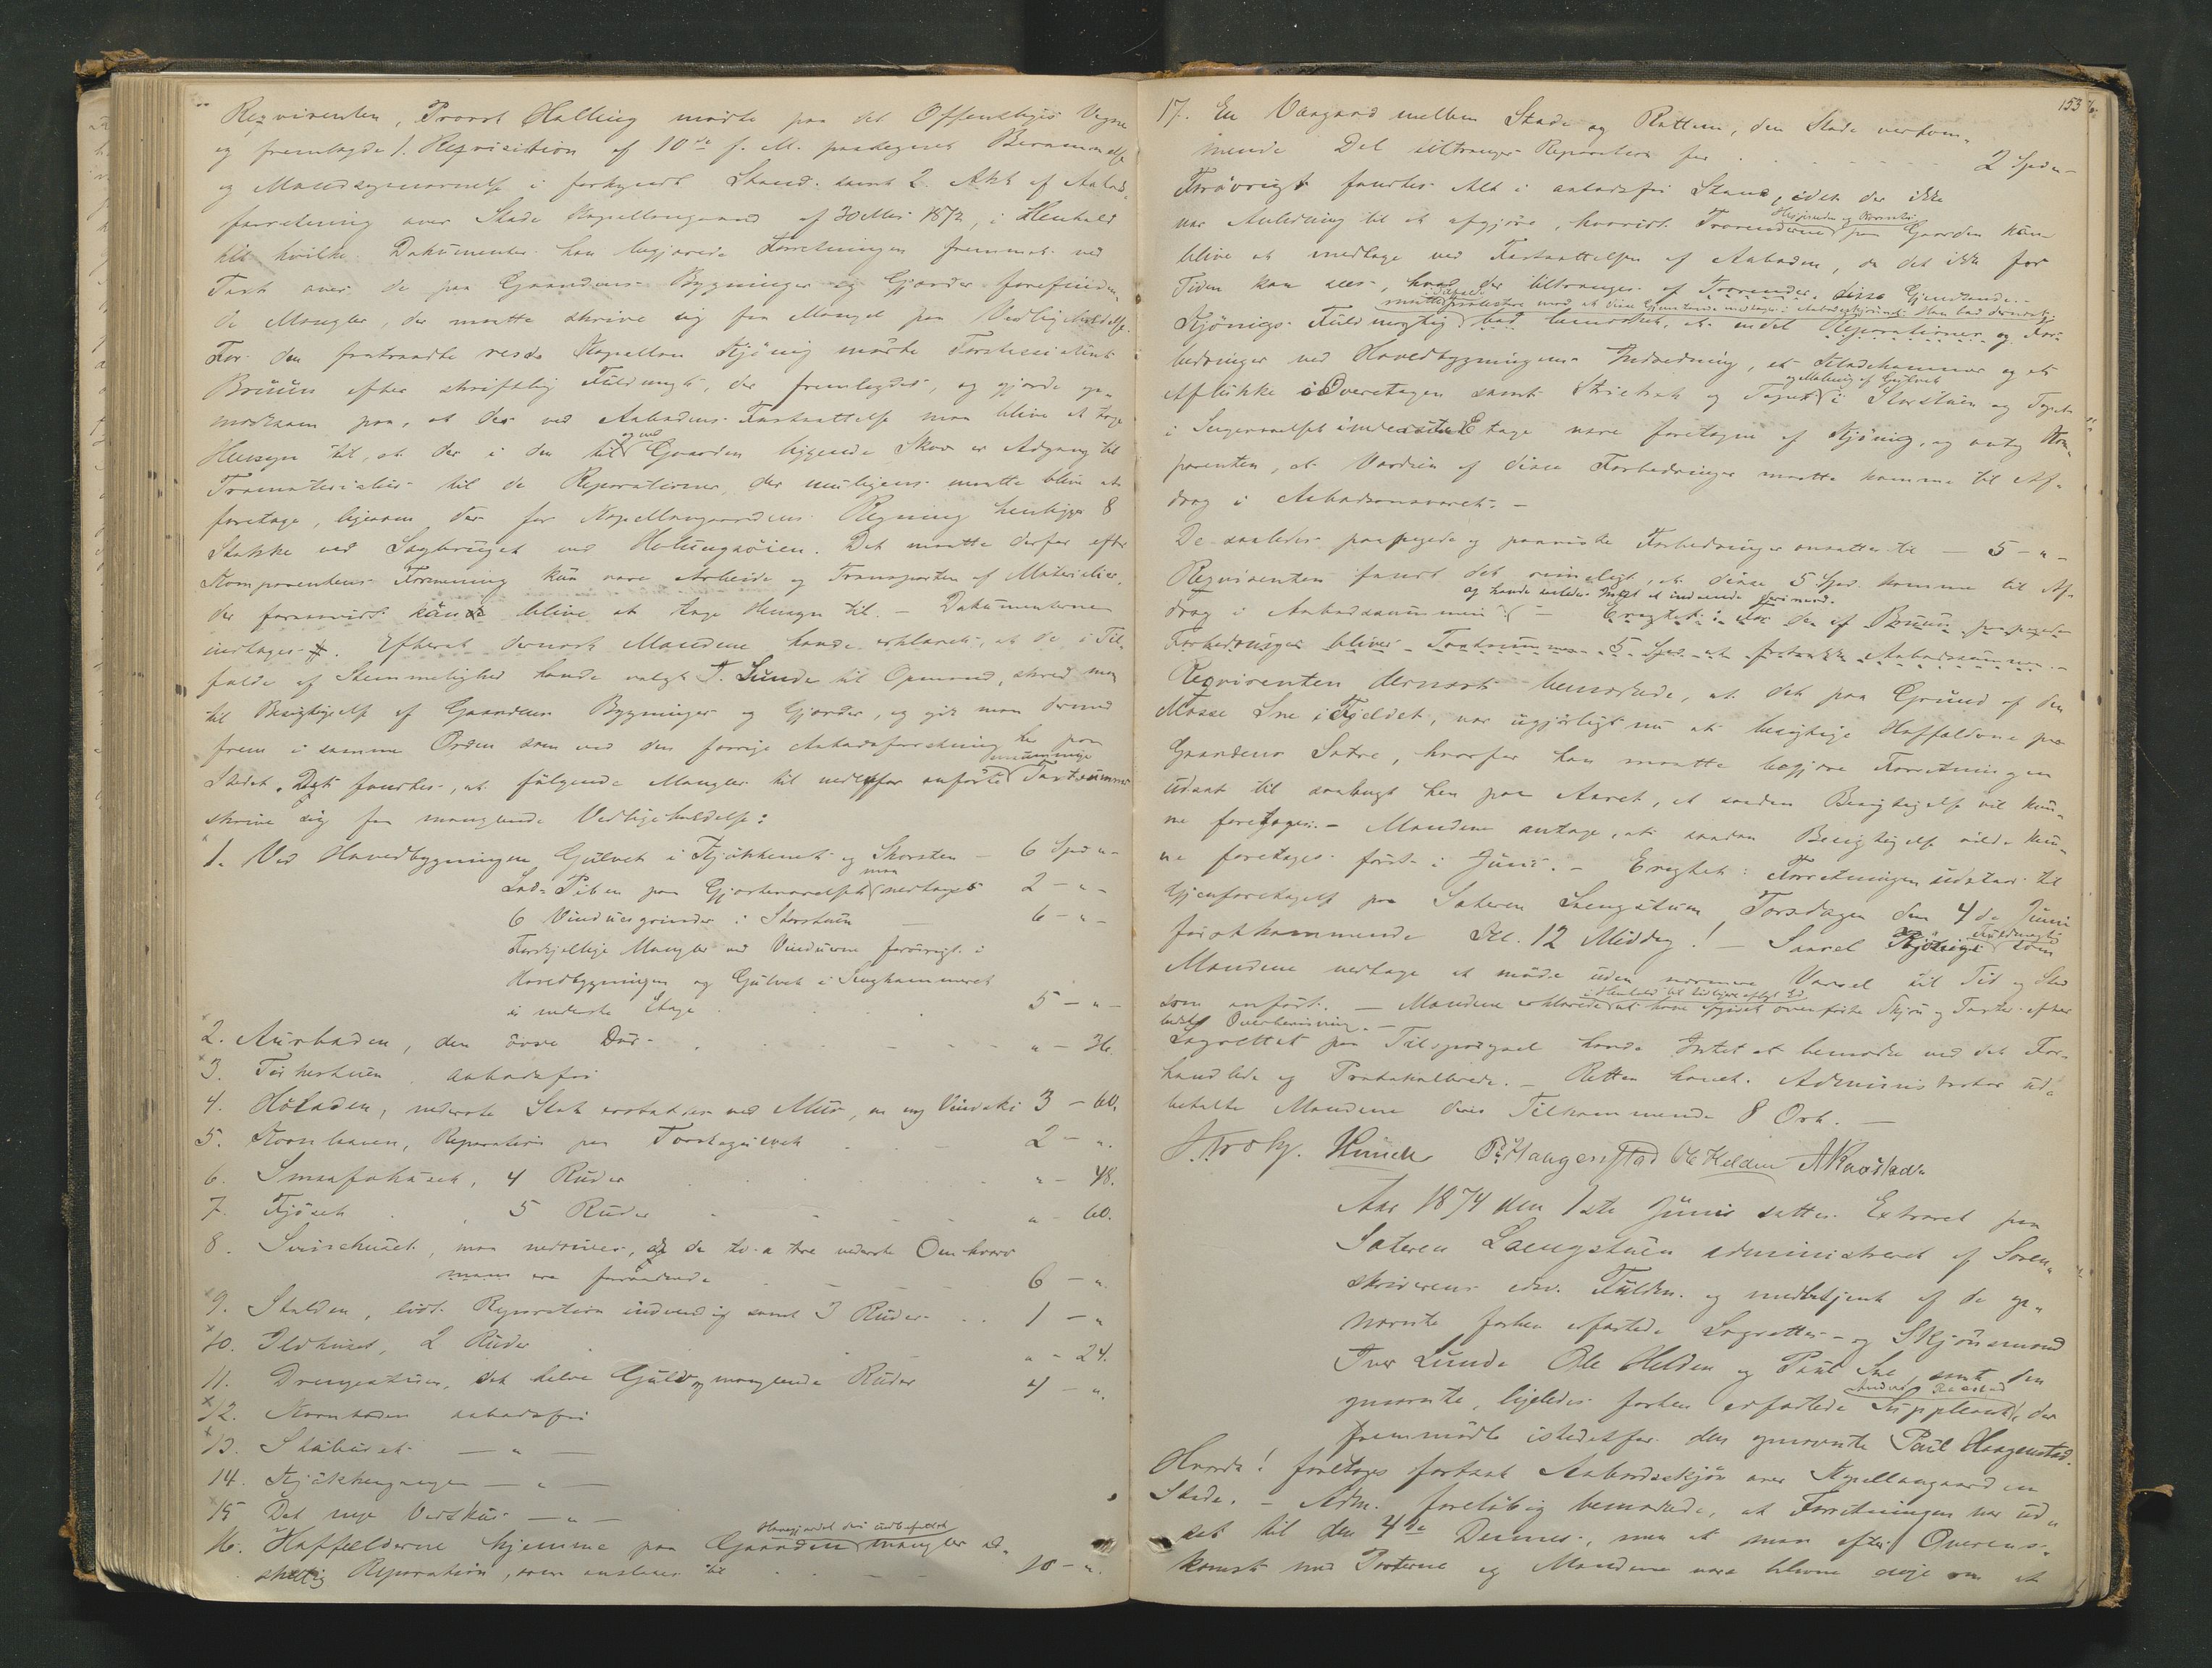 Reqvirenten, Provst Halling mødte paa det Offentliges Vegne
og fremlagde 1. Reqvisition af 10de f. M. paategnet Berammelse
og Mandsopnævnelse i forkyndt Stand. samt 2. Akt af Aabods
forretning over Stade Kapellangaard af 30 Mai 1872, i Henhold
til hvilke Dokumenter han begjærede Forretningen fremmet ved
Taxt over de paa Gaardens Bygninger og Gjærder forefunden,
de Mangler, der maatte skrive sig fra Mangel paa Vedligeholdelse.
For den fratraadte resds Kapellan Kjönig mødte Forstassistent
Bruun efter skriftlig Fuldmagt, der fremlagdes, og gjorde op„
mærksom paa, at der ved Aabodens Fastsættelse maa blive at tage
Hensyn til, at der i den til og ved Gaarden liggende Skov er Adgang til
Træmaterialier til de Reparationer, der muligens maatte blive at
foretage, ligesom der for Kapellangaardens Regning henligger 8
Stokke ved Sagbruget ved Holungsöien. Det maatte derfor efter
Komparentens Formening kun være Arbeide og Transporten af Materialier,
der forsaavidt kunde blive at tage Hensyn til. – Dokumenterne
indtages #. Efterat dernæst Mændene havde erklæret, at de i Til„
fælde af Stemmelighed havde valgt I. Lunde til Opmand, skred man
til Besigtigelse af Gaardens Bygninger og Gjærder, og gik man dermed
frem i samme Orden som ved den forrige Aabodsforretning her paa
Stedet. Det fandtes, at fölgende Mangler til nedenfor anförte Taxtsummer
skrive sig fra manglende Vedligeholdelse:
1. Ved Hovedbygningen Gulvet i Kjökkenet og Skorsten – 6 Spd „ –
Lad= Piben paa Gjæsteværelset maa nedtages 2 – „ –
6 Vinduesgrinder i Storstuen – 6 – „ –
Forskjellige Mangler ved Vinduerne forövrigt i
Hovedbygningen og Gulvet i Sengkammeret
i nederste Etage 5 – „ –
2. Aurboden, den övre Dör „ – 36.
3. Tærskestuen aabodsfri
4. Höladen, nederste Stok erstattes med Mur, en ny Vindski 3 – 60.
5. Kornlaven, Reparation paa Tærskegulvet 2 – „.
6. Smaafæhuset, 4 Ruder „ – 48.
7. Fjöset 5 Ruder „ – 60.
8. Svinehuset, maa nedrives, da de to a tre nederste Omhvarv
mans ere forraadnede 6 – „.
9. Stalden, lidt Reparation indvendig samt 3 Ruder 1 – „
10. Ildhuset, 2 Ruder „ – 24.
11. Drengestuen, det halve Gulv og manglende Ruder 4 – „.
12. Kornboden aabodsfri
13. Staburet – „ –
14. Kjökkengangen – „ –
15 Det nye Vedskur – „ –
16. Haffælderne hjemme paa Gaarden mangler ad„
skillig Reparation, som ansloges til 10 – „.
153
17. En Vaagaard mellem Stade og Rattem, den Stade vedkom„
mende Del tiltrænger Reparation for 2 Spd „ –
Forövrigt fandtes Alt i aabodsfri Stand, idet der ikke
var Anledning til at afgjöre, hvorvidt Trærenderne paa Gaarden kun
blive at medtage ved Fastsættelsen af Aaboden, da det ikke for
Tiden kan sees, hvad der tiltrænges af Trærender disse Gjenstande.
Kjönigs Fuldmægtig bad bemærket, at endel Reparationer og For„
bedringer ved Hovedbygningens Indredning, et Fladekammer og et
Aflukke i Overetagen samt Strietræk og Tapet og Maling af Gulvet i Storstuen og Tapet
i Sengeværelset i nederste Etage vare foretagne af Kjönig, og antog Kom„
parenten, at Værdien af disse Forbedringer maatte komme til Af„
drag i Aabodsansvaret. –
De saaledes paapegede og paaviste Forbedringer ansattes til – 5 – „ –
Reqvirenten fandt det rimeligt, at disse 5 Spd. komme til Af„
og havde saaledes Intet at indvende derimod.
drag i Aabodssummen – Eragtet: For de af Bruun paapegede
Forbedringer bliver Taxtsummen 5 Spd. at fratrække Aabodssummen. –
Reqvirenten dernæst bemærkede, at det paa Grund af den
Masse Sne i Fjeldet, var ugjörligt nu at besigtige Haffældene paa
Gaardens Sætre, hvorfor han maatte begjære Forretningen
udsat til saalangt hen paa Aaret, at saadan Besigtigelse vil kun„
ne foretages. – Mændene antage, at saadan Besigtigelse vilde kun„
ne foretages först i Juni. – Eragtet: Forretningen udstaar til
Gjenforetagelse paa Sæteren Lengstuen Torsdagen den 4de Juni
förstkommende Kl. 12 Middag! – Saavel Kjönigs Fuldmægtig som
Mændene vedtage at møde uden nærmere Varsel til Tid og Sted
som anfört. – Mændene erklærede at have afgivet ovenförte Skjön og Taxter efter
bedste Overbevisning. –
Lagrettet paa Tilspörgsel havde Intet at bemærke ved det For„
handlede og Protokollerede. – Retten hævet. Administrator ud„
betalte Mændene deres Tilkommende 8 Ort. –
P. Haugenstad Ole Helden A Raastad
Aar 1874 den 1ste Juni sattes Extraret paa
Sæteren Laengstuen administreret af Soren„
skriverens edsv. Fuldm. og medbetjent af de op„
nævnte forhen edfæstede Lagrettes- og Skjönsmænd
Iver Lunde Ole Helden og Paul Sne samt den
opnævnte, ligeledes forhen edfæstede Suppleant, der
fremmödte istedetfor den opnævnte Paul Haagenstad.
Hvorda! foretoges fortsat Aabodsskjön over Kapellangaarden
Stade. – Adm. foreløbig bemærkede, at Forretningen var ud„
sat til den 4de Dennes, men at man efter Overens„
komst med Parterne og Mændene vare blevne enige om at